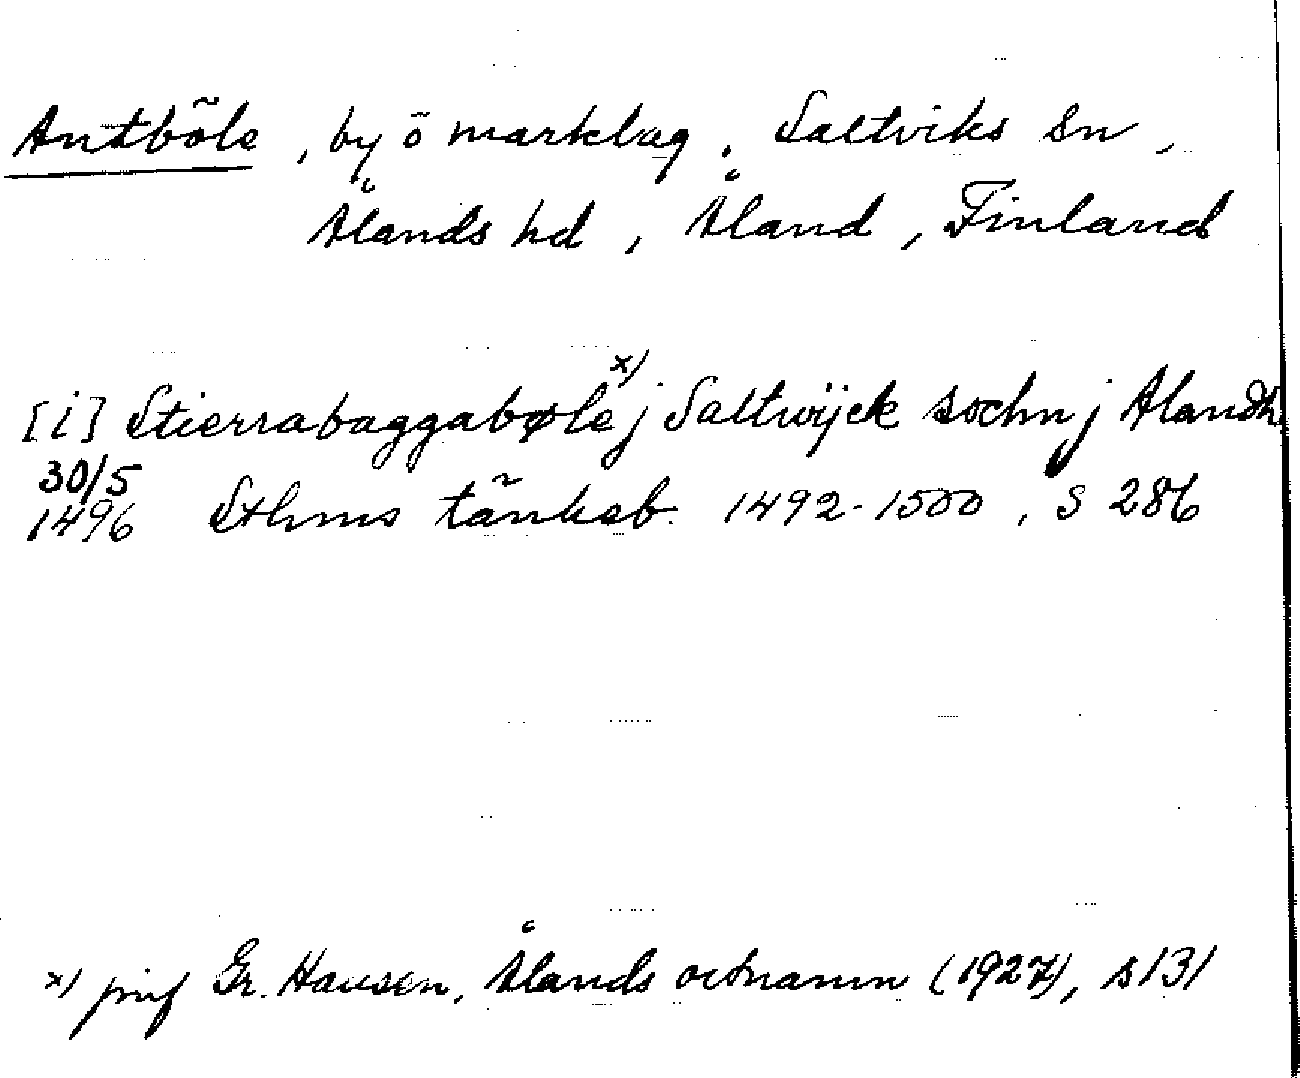 Antböle, by ö marklag, Saltviks sn,
Ålands hd, Åland, Finland
[i] Stierrabaggabøle x) j Saltwijck sochn j Alandh
30/5
1496 Sthms tänkeb. 1492-1500, s 286
x) jmf Gr. Hausen, Ålands ortnamn (1927), s 131